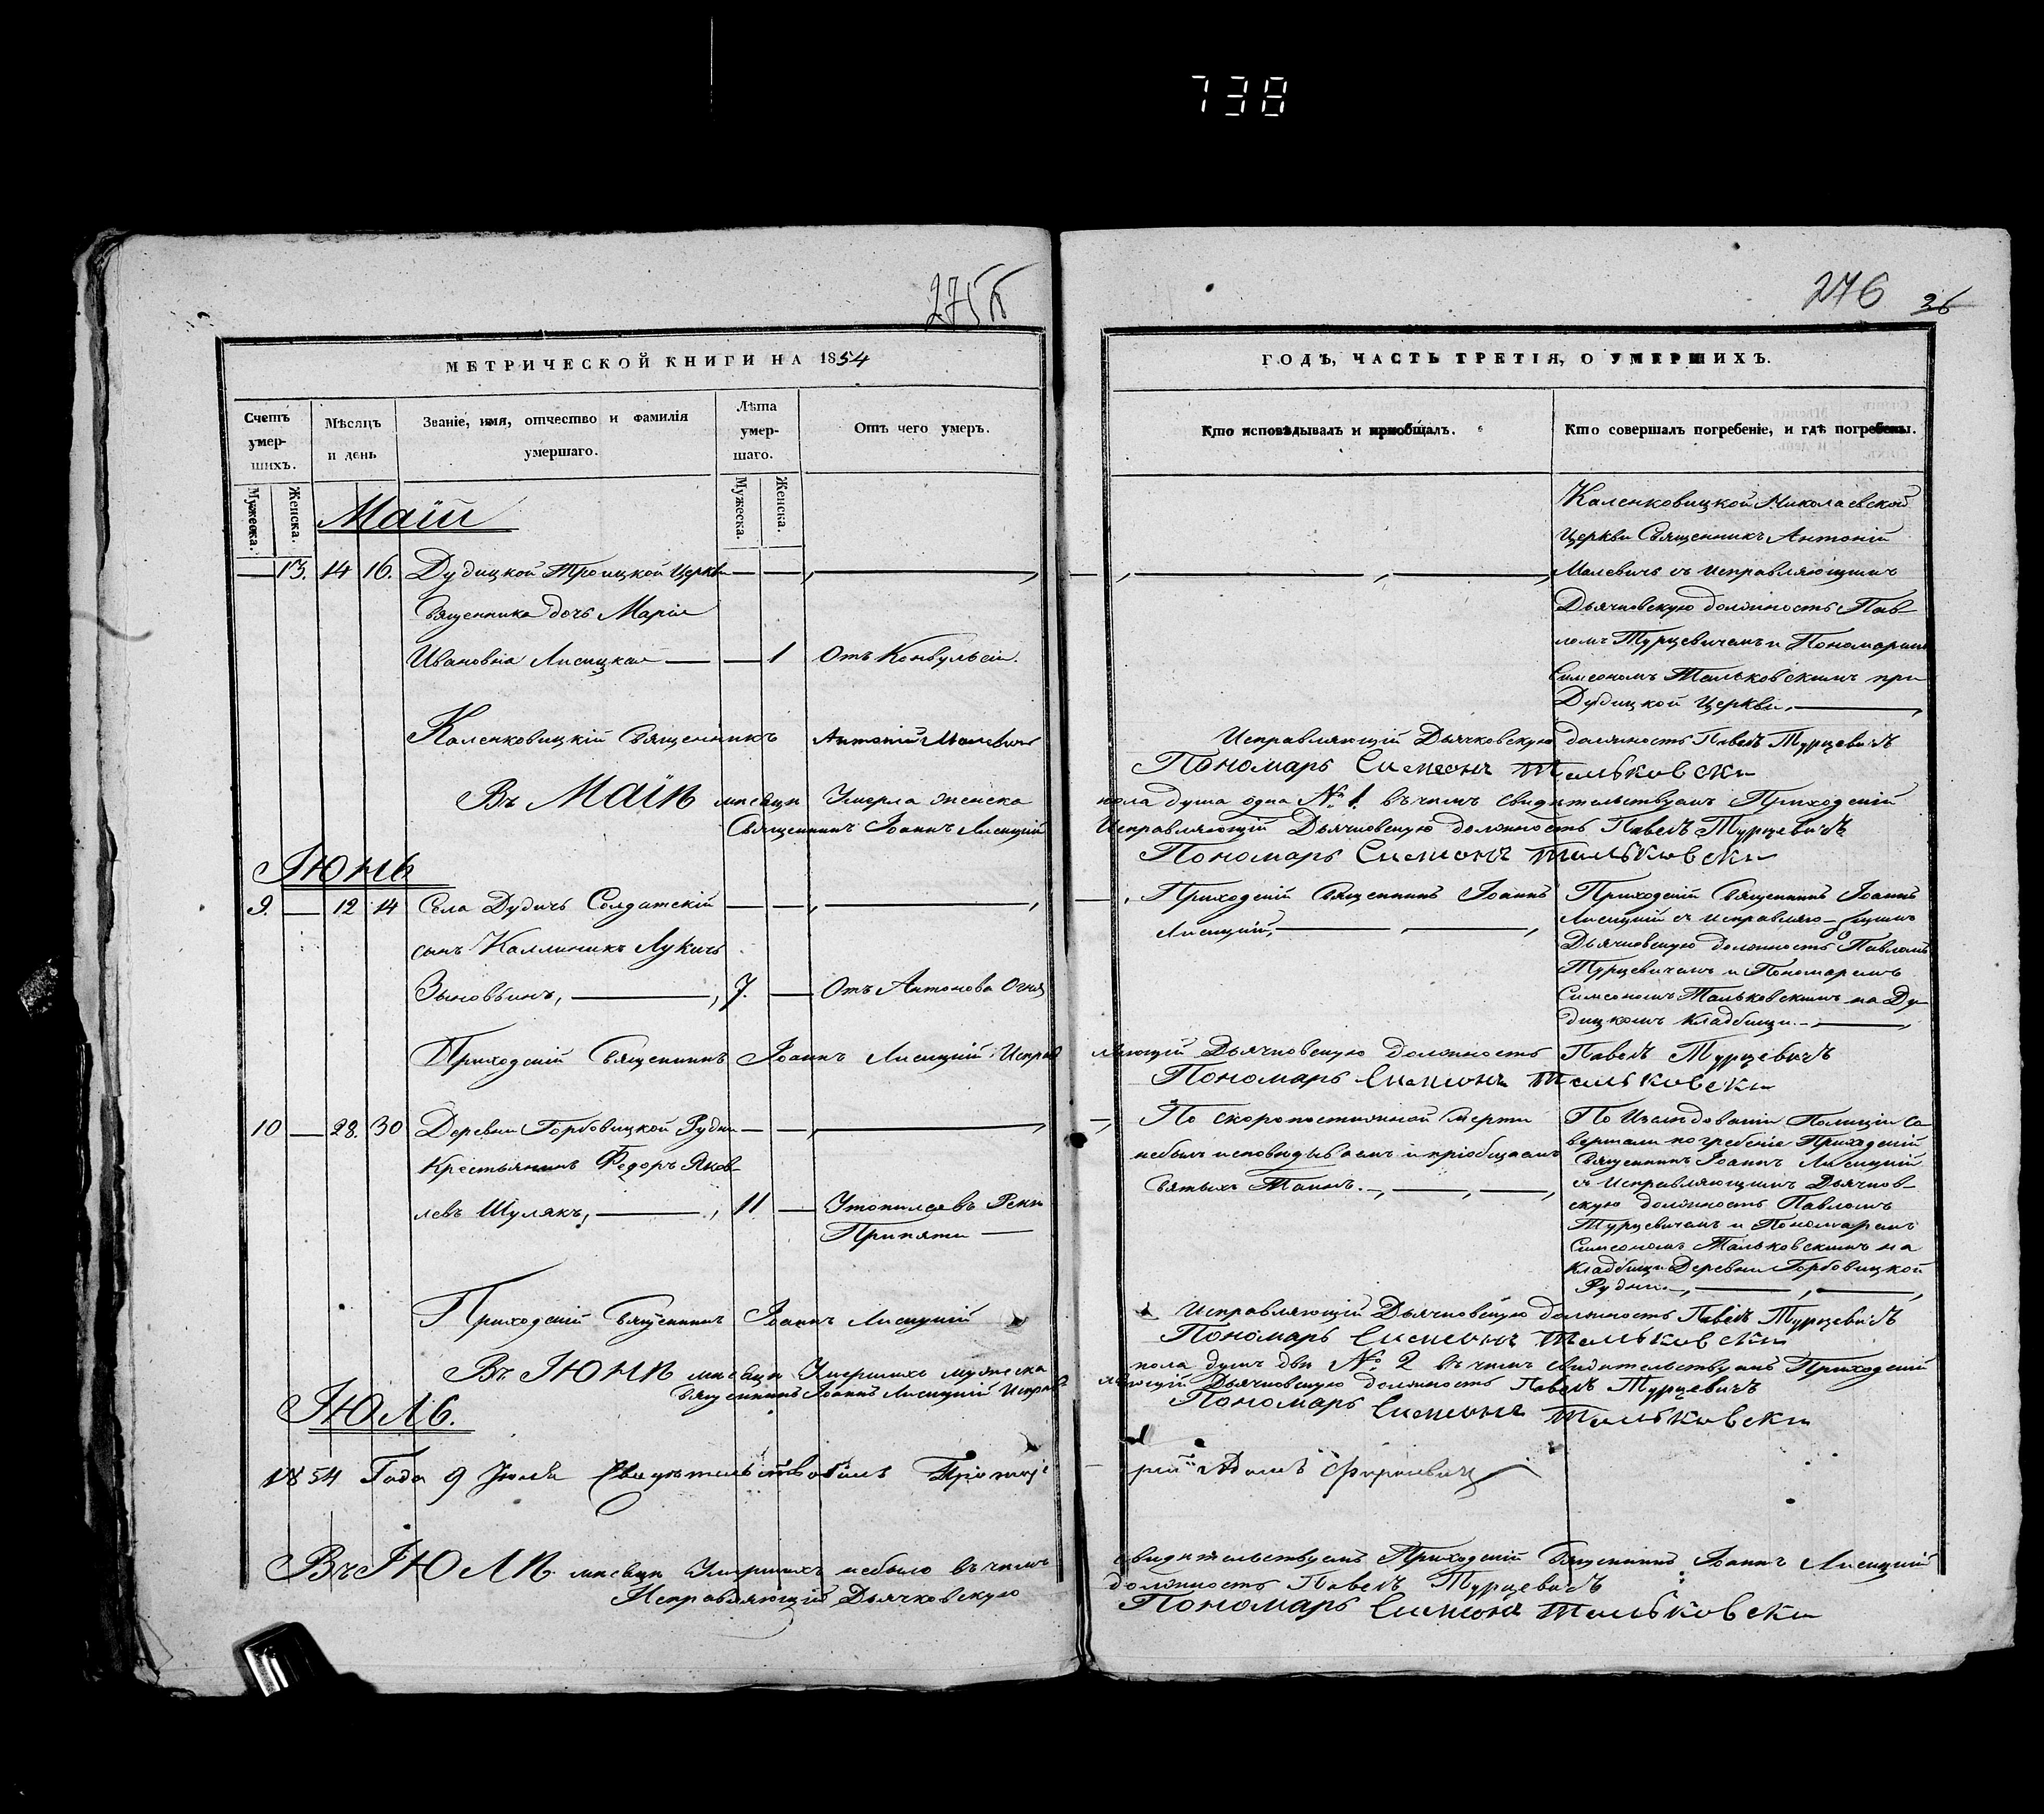 738
275
276
36
МЕТРИЧЕСКОЙ КНИГИ НА 1854
Счетъ умер-шихъ.
Мѣсяцъ и день
Званіе, имя, отчество и фамилія умершаго.
Лѣта умер-шаго.
Отъ чего умеръ.
Мужеска.
Женска.
Мужеска.
Женска.
Маій
13. 14 16. Дудицкой Троицкой Церкви
Священника дочь Марія
Ивановна Лисицкая — 1 Отъ Конвульсіи.
Каленковицкій Священникъ Антоній Малевичъ
Въ Маіѣ мѣсяцѣ Умерла женска
Священникъ Іоаннъ Лисицкій
Іюнь
9. — 12 14 Села Дудичъ Солдатскій
сынъ Каллиникъ Лукичъ
Зыновьинъ, — 7. — Отъ Антонова Огня
Приходскій Священникъ Іоаннъ Лисицкій Исправ
10 — 28. 30 Деревни Горбовицкой Рудни
Крестьянинъ Федоръ Яков-
левъ Шулякъ, — 11 — Утопился въ Реки
Припяти —
Приходскій Священникъ Іоаннъ Лисицкій
Въ Іюнѣ мѣсяцѣ Умершихъ мужеска
Священникъ Іоаннъ Лисицкій Исправ
Іюль.
1854 Года 9 Іюля Свидѣтельствовалъ Протоіе
Въ Іюлѣ мѣсяцѣ Умершихъ небыло въ чемъ
Исправляющій Дьячковскую
ГОДЪ, ЧАСТЬ ТРЕТІЯ, О УМЕРШИХЪ.
Кто исповѣдывалъ и пріобщалъ.
Кто совершалъ погребеніе, и гдѣ погребены.
Каленковицкой Николаевской
Церкви Священникъ Антоній
Малевичъ съ исправляющимъ
Дьячковскую должность Пав
ломъ Турцевичемъ и Пономаремъ
Симеономъ Тальковскимъ при
Дудицкой Церкви.
Исправляющій Дьячковскую должность Павелъ Турцевичъ
Пономарь Симеонъ Тальковски
пола душа одна № 1. въ чемъ свидѣтельствуемъ Приходскій
Исправляющій Дьячковскую должность Павелъ Турцевичъ
Пономарь Симеонъ Тальковски
Приходскій Священникъ Іоаннъ
Лисицкій,
Приходскій Священникъ Іоаннъ
Лисицкій съ исправляю-щимъ
Дьячковскую должность Павломъ
Турцевичемъ и Пономаремъ
Симеономъ Тальковскимъ на Ду-
дицкомъ кладбищи.
ляющій Дьячковскую должность Павелъ Турцевичъ
Пономарь Симеонъ Тальковски
По скоропостижной смерти
небылъ исповѣдываемъ и пріобщаемъ
Святыхъ Таинъ.
По Изслѣдованіи Полиціи Со
вершали погребеніе Приходскій
Священникъ Іоаннъ Лисицкій
съ Исправляющимъ Дьячков-
скую должность Павломъ
Турцевичемъ и Пономаремъ
Симеономъ Тальковскимъ на
кладбищи Деревни Горбовицкой
Рудни.
Исправляющій Дьячковскую должность Павелъ Турцевичъ
Пономарь Симеонъ Тальковски
пола душъ двѣ № 2 въ чемъ свидѣтельствуемъ Приходскій
ляющій Дьячковскую должность Павелъ Турцевичъ
Пономарь Симеонъ Тальковски
рей Адамъ
свидѣтельствуемъ Приходскій Священникъ Іоаннъ Лисицкій
должность Павелъ Турцевичъ
Пономарь Симеонъ Тальковски